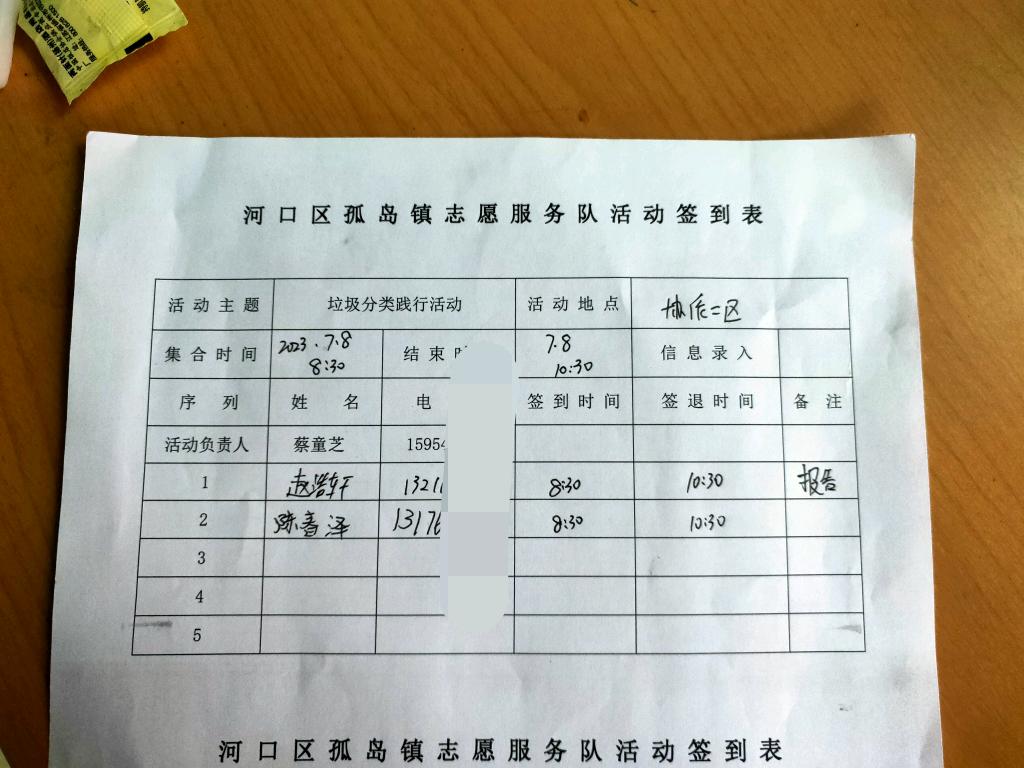 河口区孤岛镇志愿服务队活动签到表
活动主题 垃圾分类践行活动 活动地点 协作二区
集合时间 2023.7.8 8:30 结束时 7.8 10:30 信息录入
序列 姓名 电 签到时间 签退时间 备注
活动负责人 蔡童芝 15954
1 赵浩轩 1321 8:30 10:30 报告
2 陈春泽 13176 8:30 10:30
3
4
5
河口区孤岛镇志愿服务队活动签到表